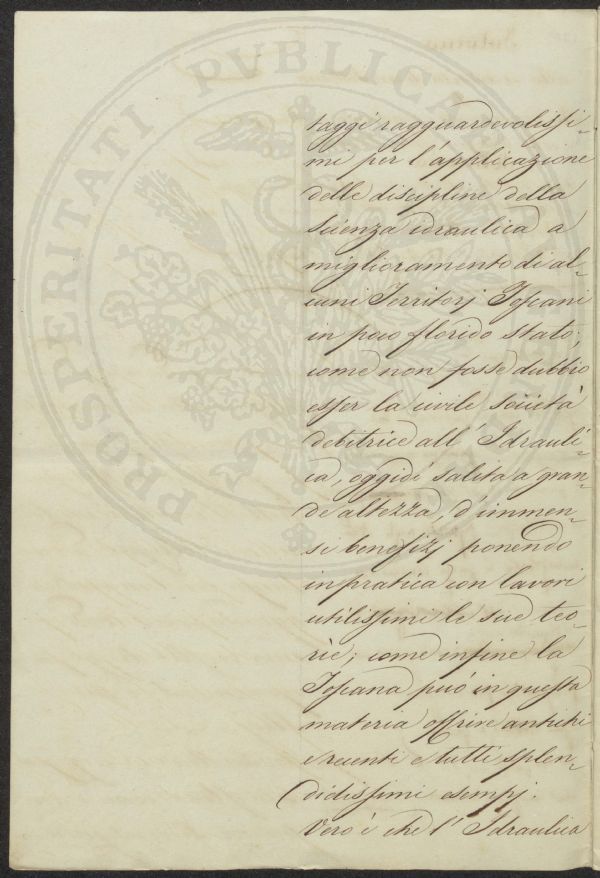 taggi ragguardevolissi-
mi per l'applicazione
delle discipline della
scienza idraulica a
miglioramento di al-
cuni Territorj Toscani
in poco florido stato;
come non fosse dubbio
esser la civile società
debitrice all'Idrauli-
ca, oggidì salita a gran-
de altezza, d'immen-
si benefizj ponendo
in pratica con lavori
utilissimi le sue teo-
rie; come infine la
Toscana può in questa
materia offrire antichi
e recenti e tutti splen-
didissimi esempj.
Vero è che l'Idraulica
PROSPERITATI PUBLICAE